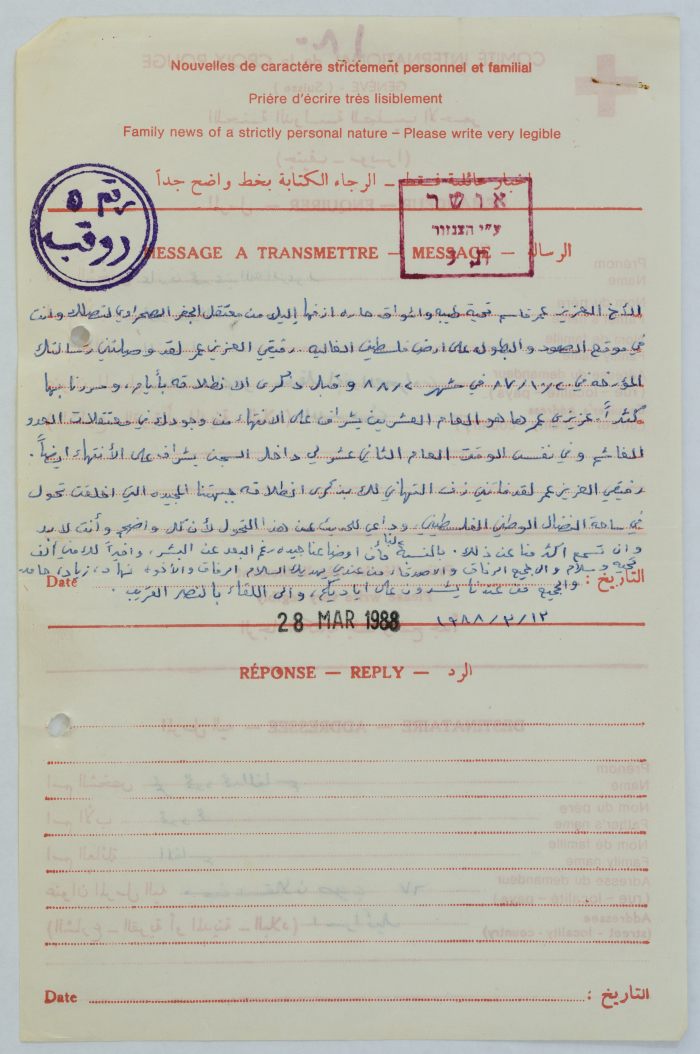 Nouvelles de caractére strictement personnel et familial
Priére d'écrire trés lisiblement
Family news of a strictly personal nature – Please write very legible
اخبار عائلية فقط ــ الرجاء الكتابة بخط واضح جداً
رقم ٥
روقب
אושר
ע"י הצנזור
MESSAGE A TRANSMETTRE — MESSAGE — الرسالة
الأخ العزيز عمر قاسم تحية طيبه واشواق حاره ازفها إليك من معتقل الجفر الصحراوي لتصلك وانت
في موقع الصمود والبطوله على ارض فلسطين الغاليه. رفيقي العزيز عمر لقد وصلتني رسالتك
المؤرخه في ٨٧/١٠/٢ في شهر ٨٨/٢ وقبل ذكرى الانطلاقه بأيام، وسررنا بها
كثيراً. عزيزي عمر ها هو العام العشرين يشراف على الانتهاء من وجودك في معتقلات العدو
الفاشم وفي نفس الوقت العام الثاني عشر لي داخل السجن يشراف على الأنتهاء ايضاً.
رفيقي العزيز عمر لقد فاتني زف التهاني لك بذكرى انطلاقه جبهتنا المجيده التي اخلقت تحول
في ساحة النضال الوطني الفلسطيني، وداعي للحديث عن هذا التحول لأن كل واضح وأنت لا بد
وان تسمع اكثر منا عن ذلك. بالنسبة لنا فأن اوضاعنا جيده رغم البعد عن البشر، واخيراً لك مني ألف
تحيه وسلام والى جميع الرفاق والاصدقاء، من عندي يهديك السلام الرفاق والأخوه نهاد، زياد، حامد
والجميع من عندنا يشدون على اياديكم، والى اللقاء بالنصر القريب.
Date التاريخ :
28 MAR 1988 ١٩٨٨/٣/١٢
RÉPONSE — REPLY — الرد
Date التاريخ :